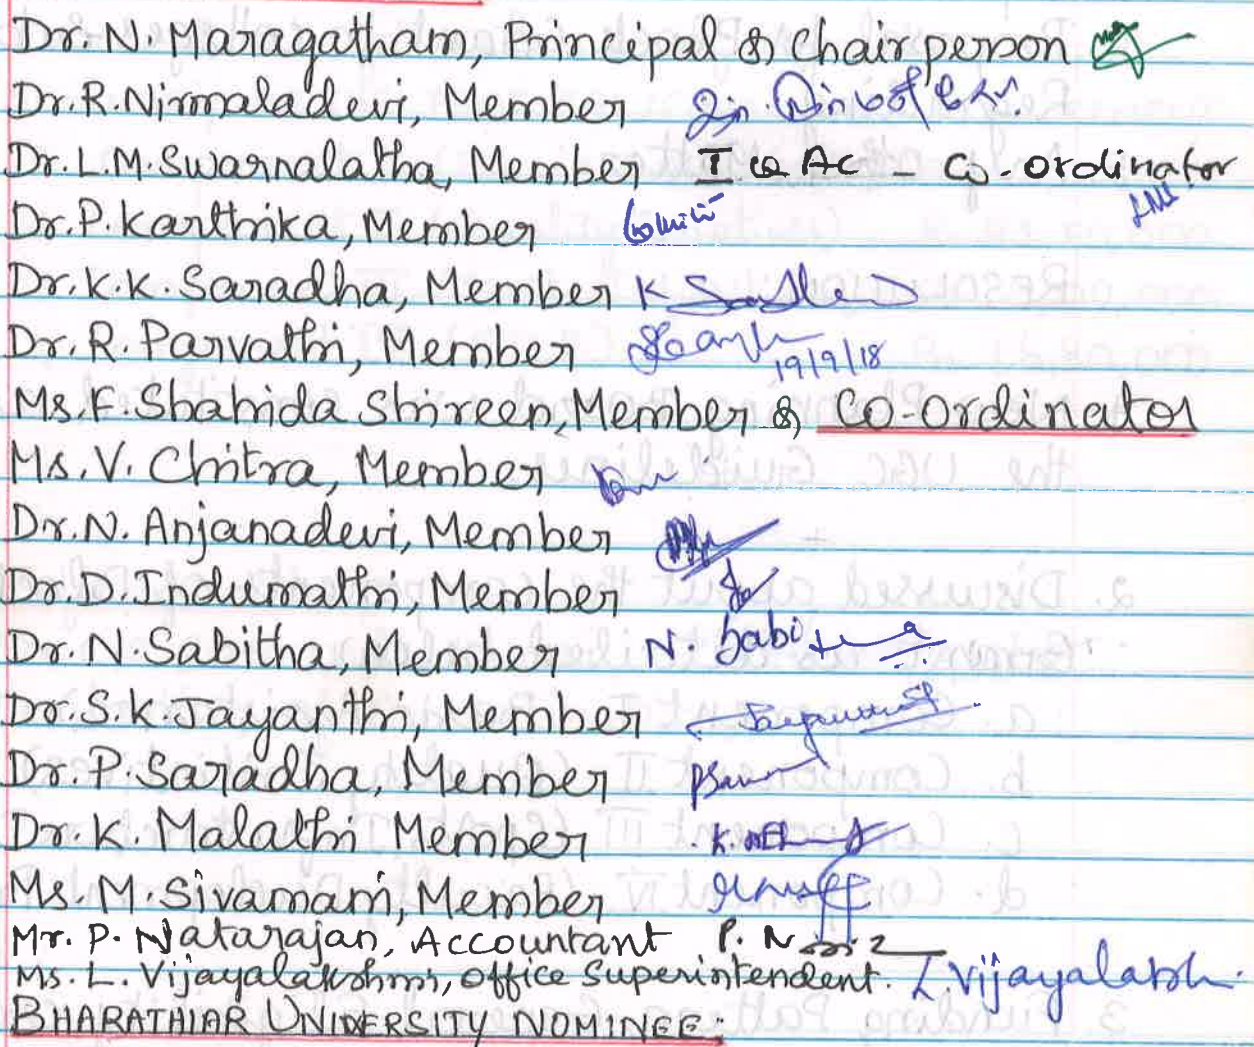 Dr. N. Maragatham, Principal & Chairperson
Dr. R. Nirmaladevi, Member
Dr. L.M. Swarnalatha, Member IQAC - Co-ordinator
Dr. P. Karthika, Member
Dr. K.K. Saradha, Member K
Dr. R. Parvathi, Member 19/9/18
Ms. F. Shahida Shireen, Member & Co-ordinator
Ms. V. Chitra, Member
Dr. N. Anjanadevi, Member
Dr. D. Indumathi, Member
Dr. N. Sabitha, Member N. Sabitha
Dr. S.K. Jayanthi, Member
Dr. P. Saradha, Member
Dr. K. Malathi Member
Ms. M. Sivamani, Member
Mr. P. Natarajan, Accountant P. N
Ms. L. Vijayalakshmi, Office Superintendent. L. Vijayalaksh
BHARATHIAR UNIVERSITY NOMINEE: